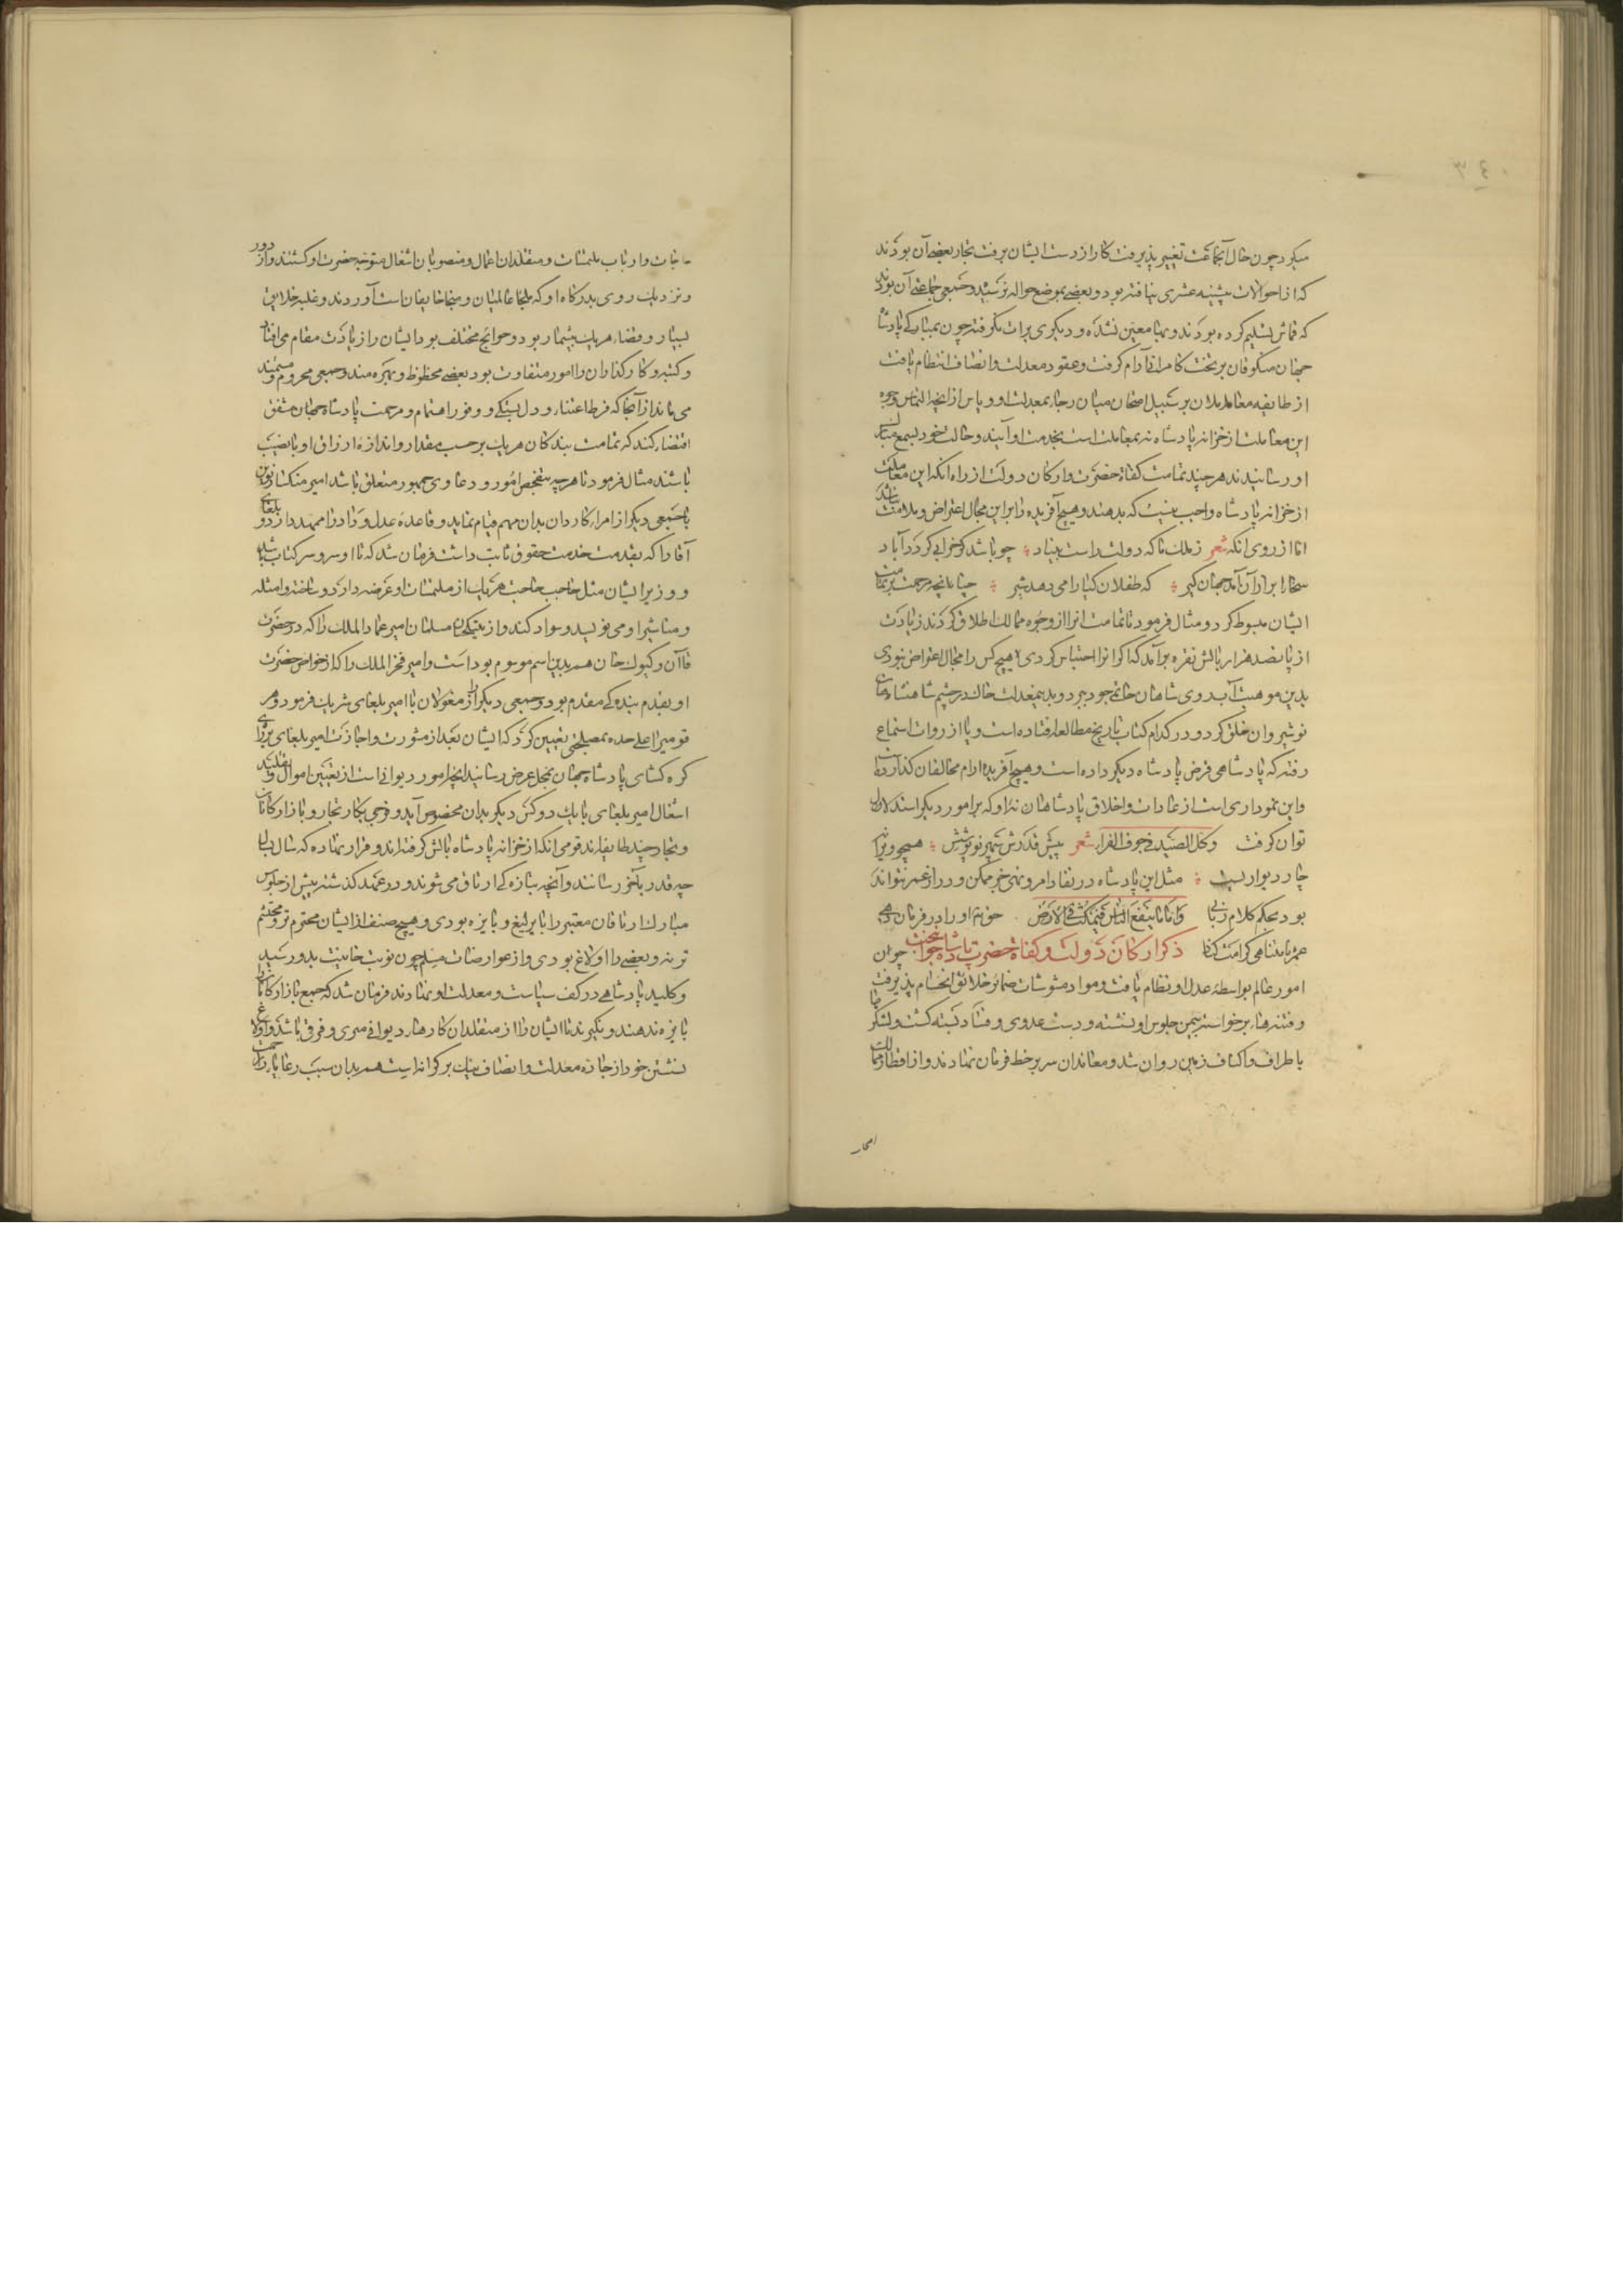 ۳۴۰
میکرد چون حال آنجماعت تغییر پذیرفت کار از دست ایشان برفت تجار بعضی آن بودند
که از احوالات پیشینه عشری نیافته بود و بعضی بموضع حواله نرسید و جمعی جماعتی آن بودند
که قماش تسلیم کرده بودند و بها معین نشده و دیگری برات نگرفته چون بمبارکی پادشاه
جهان منکوقاآن بر تخت کامرانی آرام گرفت و عقود معدلت و انصاف انتظام یافت
از طایفه معاملان بر سبیل امتحان میان رجا بمعدلت او و یاس از آنچه التماس وجوه
این معاملت از خزانه پادشاه نه بمعاملت است بخدمت او آیند و حالت خود بسمع مبارک
او رسانیدند هر چند تمامت کفاة حضرت و ارکان دولت از راه آنکه این معاملت
از خزانه پادشاه واجب نیست که بدهند و هیچ آفریده را بر این مجال اعتراض و ملامت نباشد
اما از روی آنکه شعر ز ملک تا که دولت راست بنیاد چو باشد کو خرابی کرد آباد
سخا را برادر آن آمد جهان گیر که طفلان کیا را می دهد شیر جناح مرحمت بر تمامت
ایشان مبسوط کرد و مثال فرمود تا تمامت آنرا از وجوه ممالک اطلاق کردند زیادت
از پانصد هزار بالش نقره برآمد که اگر آنرا احتباس کردی هیچ کس را مجال اعتراض نبودی
بدین موهبت آب روی شاهان حاتم جود ببرد و بدین معدلت خاک در چشم شاهنشاهان
نوشیروان خلق کرد و در کدام کتاب تاریخ مطالعه افتاده است و یا از روات استماع
رفته که پادشاهی قرض پادشاه دیگر داده است و هیچ آفریده اوام مخالفان گذارده
و این نموداری است از عادات و اخلاق پادشاهانه او که بر امور دیگر استدلال
توان گرفت وکل الصید فی جوف الفراء شعر پیش قدرش سپهر نوپوشش هیچ ویرانه
چار دیواریست مثل این پادشاه در نفاذ امر و نهی خبر ممکن و دراز عمر تواند
بود بحکم کلام ربانی وَاَمّا ما یَنفَعُ النّاسَ فَیَمکُثُ فِی الاَرض حق تعالی او را در فرمان دهی
عمر نامتناهی کرامت کناد ذکر ارکان دولت و کفاة حضرت پادشاه جوانبخت چون
امور عالم بواسطه عدل او نظام یافت و مواد مشوشات ضمائر خلائق انحسام پذیرفت
و فتنه‌ها برخواسته بیمن جلوس او نشسته و دست عدوی و فساد بسته گشت و لشکرها
باطراف و اکناف زمین روان شد و معاندان سر بر خط فرمان نهادند و از اقطار ممالک
اصحاب
حاجات و ارباب ملتمسات و متقلدان اعمال و منصوبان اشغال متوجه حضرت او گشتند و از دور
و نزدیک روی بدرگاه او که ملجاء عالمیان و منجاء خایفان است آوردند و غلبه خلایق
بسیار و قضاء هر یک بیشمار بود و حوایج مختلف بود ایشان را زیادت مقام می‌افتاد
و کتبه و کارگذاران را امور متفاوت بود بعضی محظوظ و بهره‌مند و جمعی محروم و مستمند
می‌ماند از آنجا که فرط اعتناء و دل بستگی و وفور اهتمام و مرحمت پادشاه جهان مشفق
اقتضاء کند که تمامت بندگان هر یک بر حسب مقدار و اندازه از ارزاق او با نصیب
باشند مثال فرمود تا هر چه بتفحص امور و دعاوی جمهور متعلق باشد امیر منکسار نوین
با جمعی دیگر از امراء کاردان بدان مهم قیام نماید و قاعده عدل و داد را ممهد دارد و بلغای
آقا را که بقدمت خدمت حقوق ثابت داشت فرمان شد که تا او سر و سر کتاب باشد
و وزیر ایشان مثل حاجب حاجت هر یک از ملتمسات او عرضه دارد و ساخته و امثله
و مناشیر او می‌نویسد و سواد کند و از بیتکچیان مسلمان امیر عماد الملک را که در حضرت
قاآن و کیوک خان هم بدین اسم موسوم بود است و امیر فخر الملک را که از خواص حضرت
او بقدم بندگی مقدم بود و جمعی دیگر را از مغولان با امیر بلغای شریک فرمود و هر
قومیرا علی‌حده بمصلحتی تعیین کرد که ایشان بعد از مشورت و اجازت امیر بلغای بر رای
گره‌گشای پادشاه جهان بمحل عرض رسانید آنچه امور دیوانی است از تعیین اموال و تقلید
اشغال امیر بلغای با یک دو کس دیگر بدان مخصوص آید و فوجی بکار تجار و بازارگانان
و تجار چند طایفه‌اند قومی آنکه از خزانه پادشاه بالش گرفته‌اند و قرار نهاده که سال بسال
چه قدر بآخر رسانند و آنچه بتازه گی ارتاق می‌شوند و در عهد گذشته پیش از جلوس
مبارک ارتاقان معتبر را با یرلیغ و پایزه بودی و هیچ صنف از ایشان محترم‌تر و محتشم
تر نه و بعضی را اولاغ بودی و از عوارضات مسلم چون نوبت خانیت بدو رسید
و کلید پادشاهی در کف سیاست و معدلت او نهادند فرمان شد که جمع بازارگانان
پایزه ندهند و نگیرند تا ایشان را از متقلدان کارهاء دیوانی میزی و فرقی باشد و اولاغ
نشستن خود از جاده معدلت و انصاف نیک بر کرانه است هم بدان سبب رعایا را زحمت